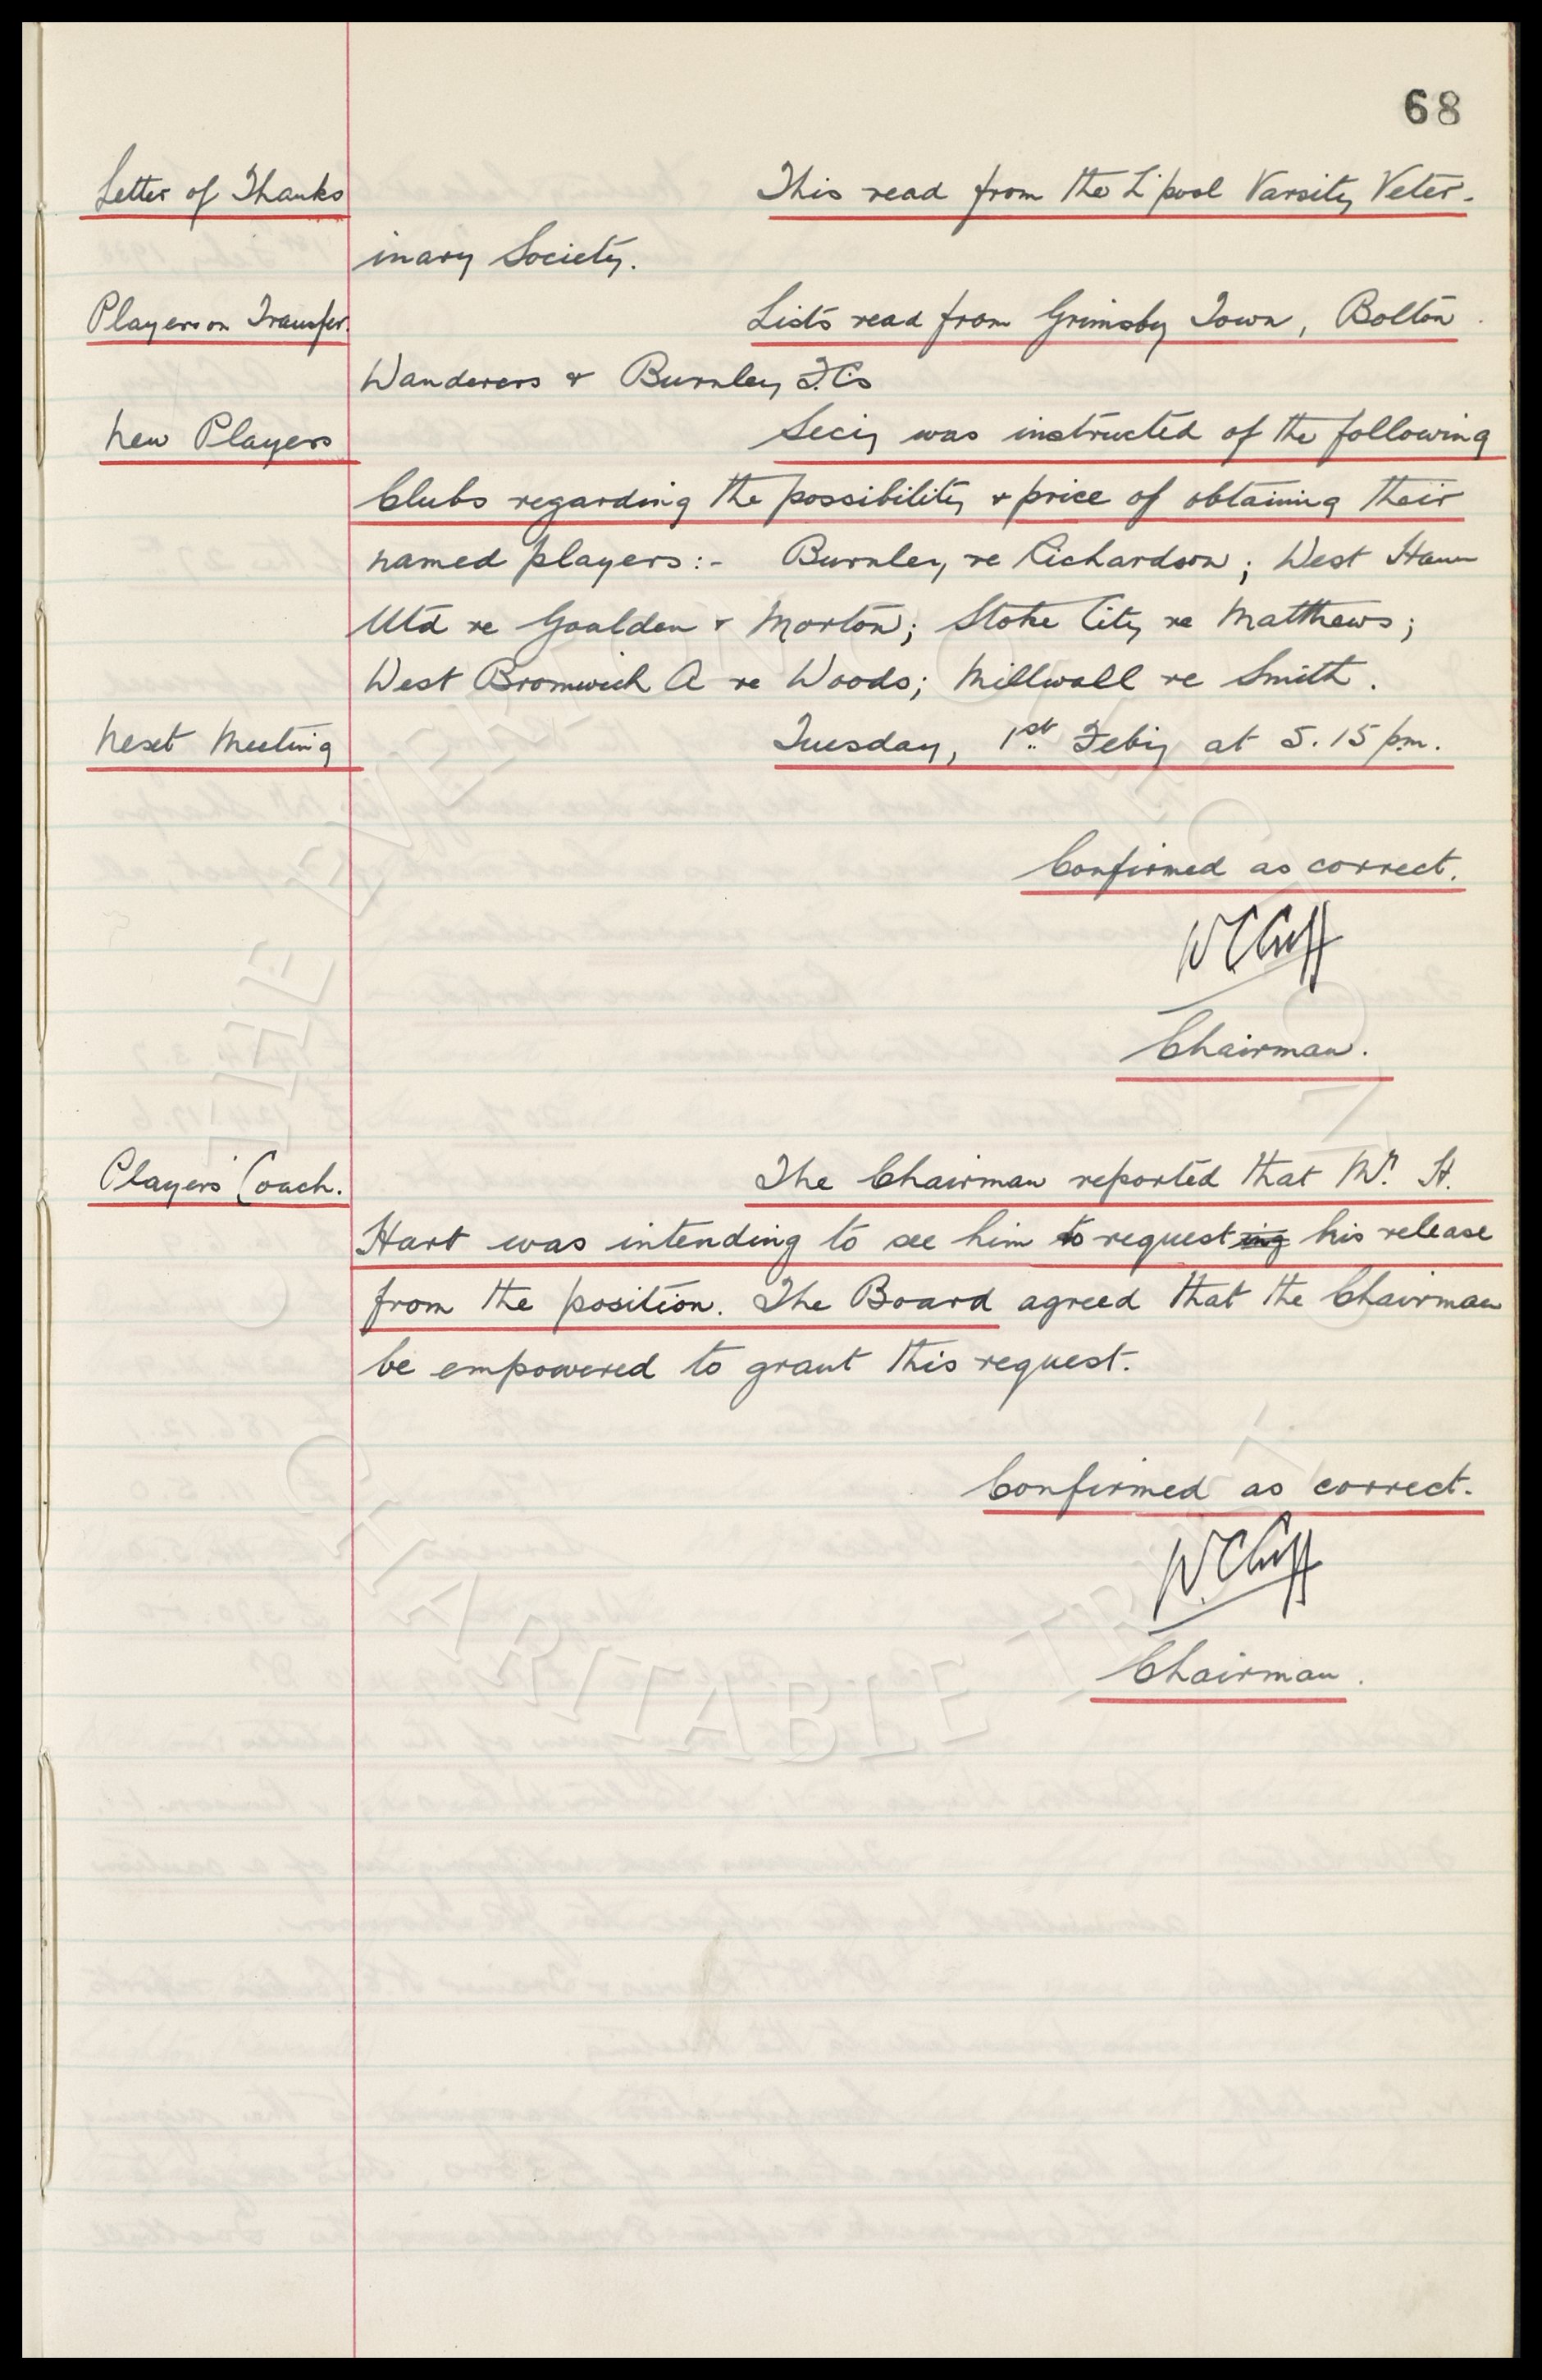 68
Letter of Thanks This read from the L'pool Varsity Veter-
inary Society.
Players on Transfer. Lists read from Grimsby Town, Bolton
Wanderers & Burnley F.Cs
New Players Secy was instructed of the following
Clubs regarding the possibility & price of obtaining their
named players:- Burnley re Richardson; West Ham
Utd re Goulden & Morton; Stoke City re Matthews;
West Bromwich A re Woods; Millwall re Smith.
Next Meeting Tuesday, 1st Feby at 5.15 pm.
Confirmed as correct.
W C Cuff
Chairman.
Players' Coach. The Chairman reported that Mr. H.
Hart was intending to see him to requesting his release
from the position. The Board agreed that the Chairman
be empowered to grant this request.
Confirmed as correct.
W. C Cuff
Chairman.